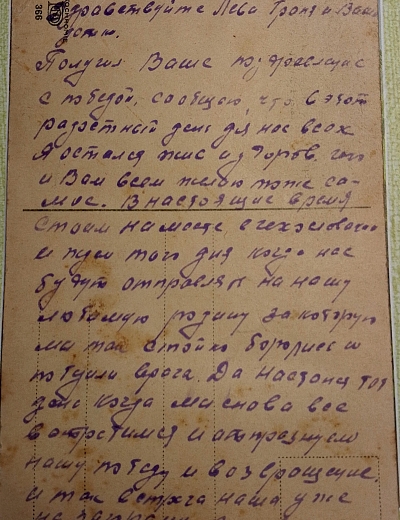 Здравствуйте Лева Гро
Получил Ваше поздравление
с победой, сообщаю, что в этот
радостный день для нас всех
я остался жив и здоров, чего
и Вам всем желаю тоже са-
мое. В настоящие время
стоим на месте в
и ждем того дня когда нас
будут отправлят на нашу
любимую родину за которую
мы так стойко боролись и
победили врага. Да настанет тот
день когда мы снова все
встретимся и отпразнуем
нашу победу и возвращение.
и так встреча наша уже
не
366